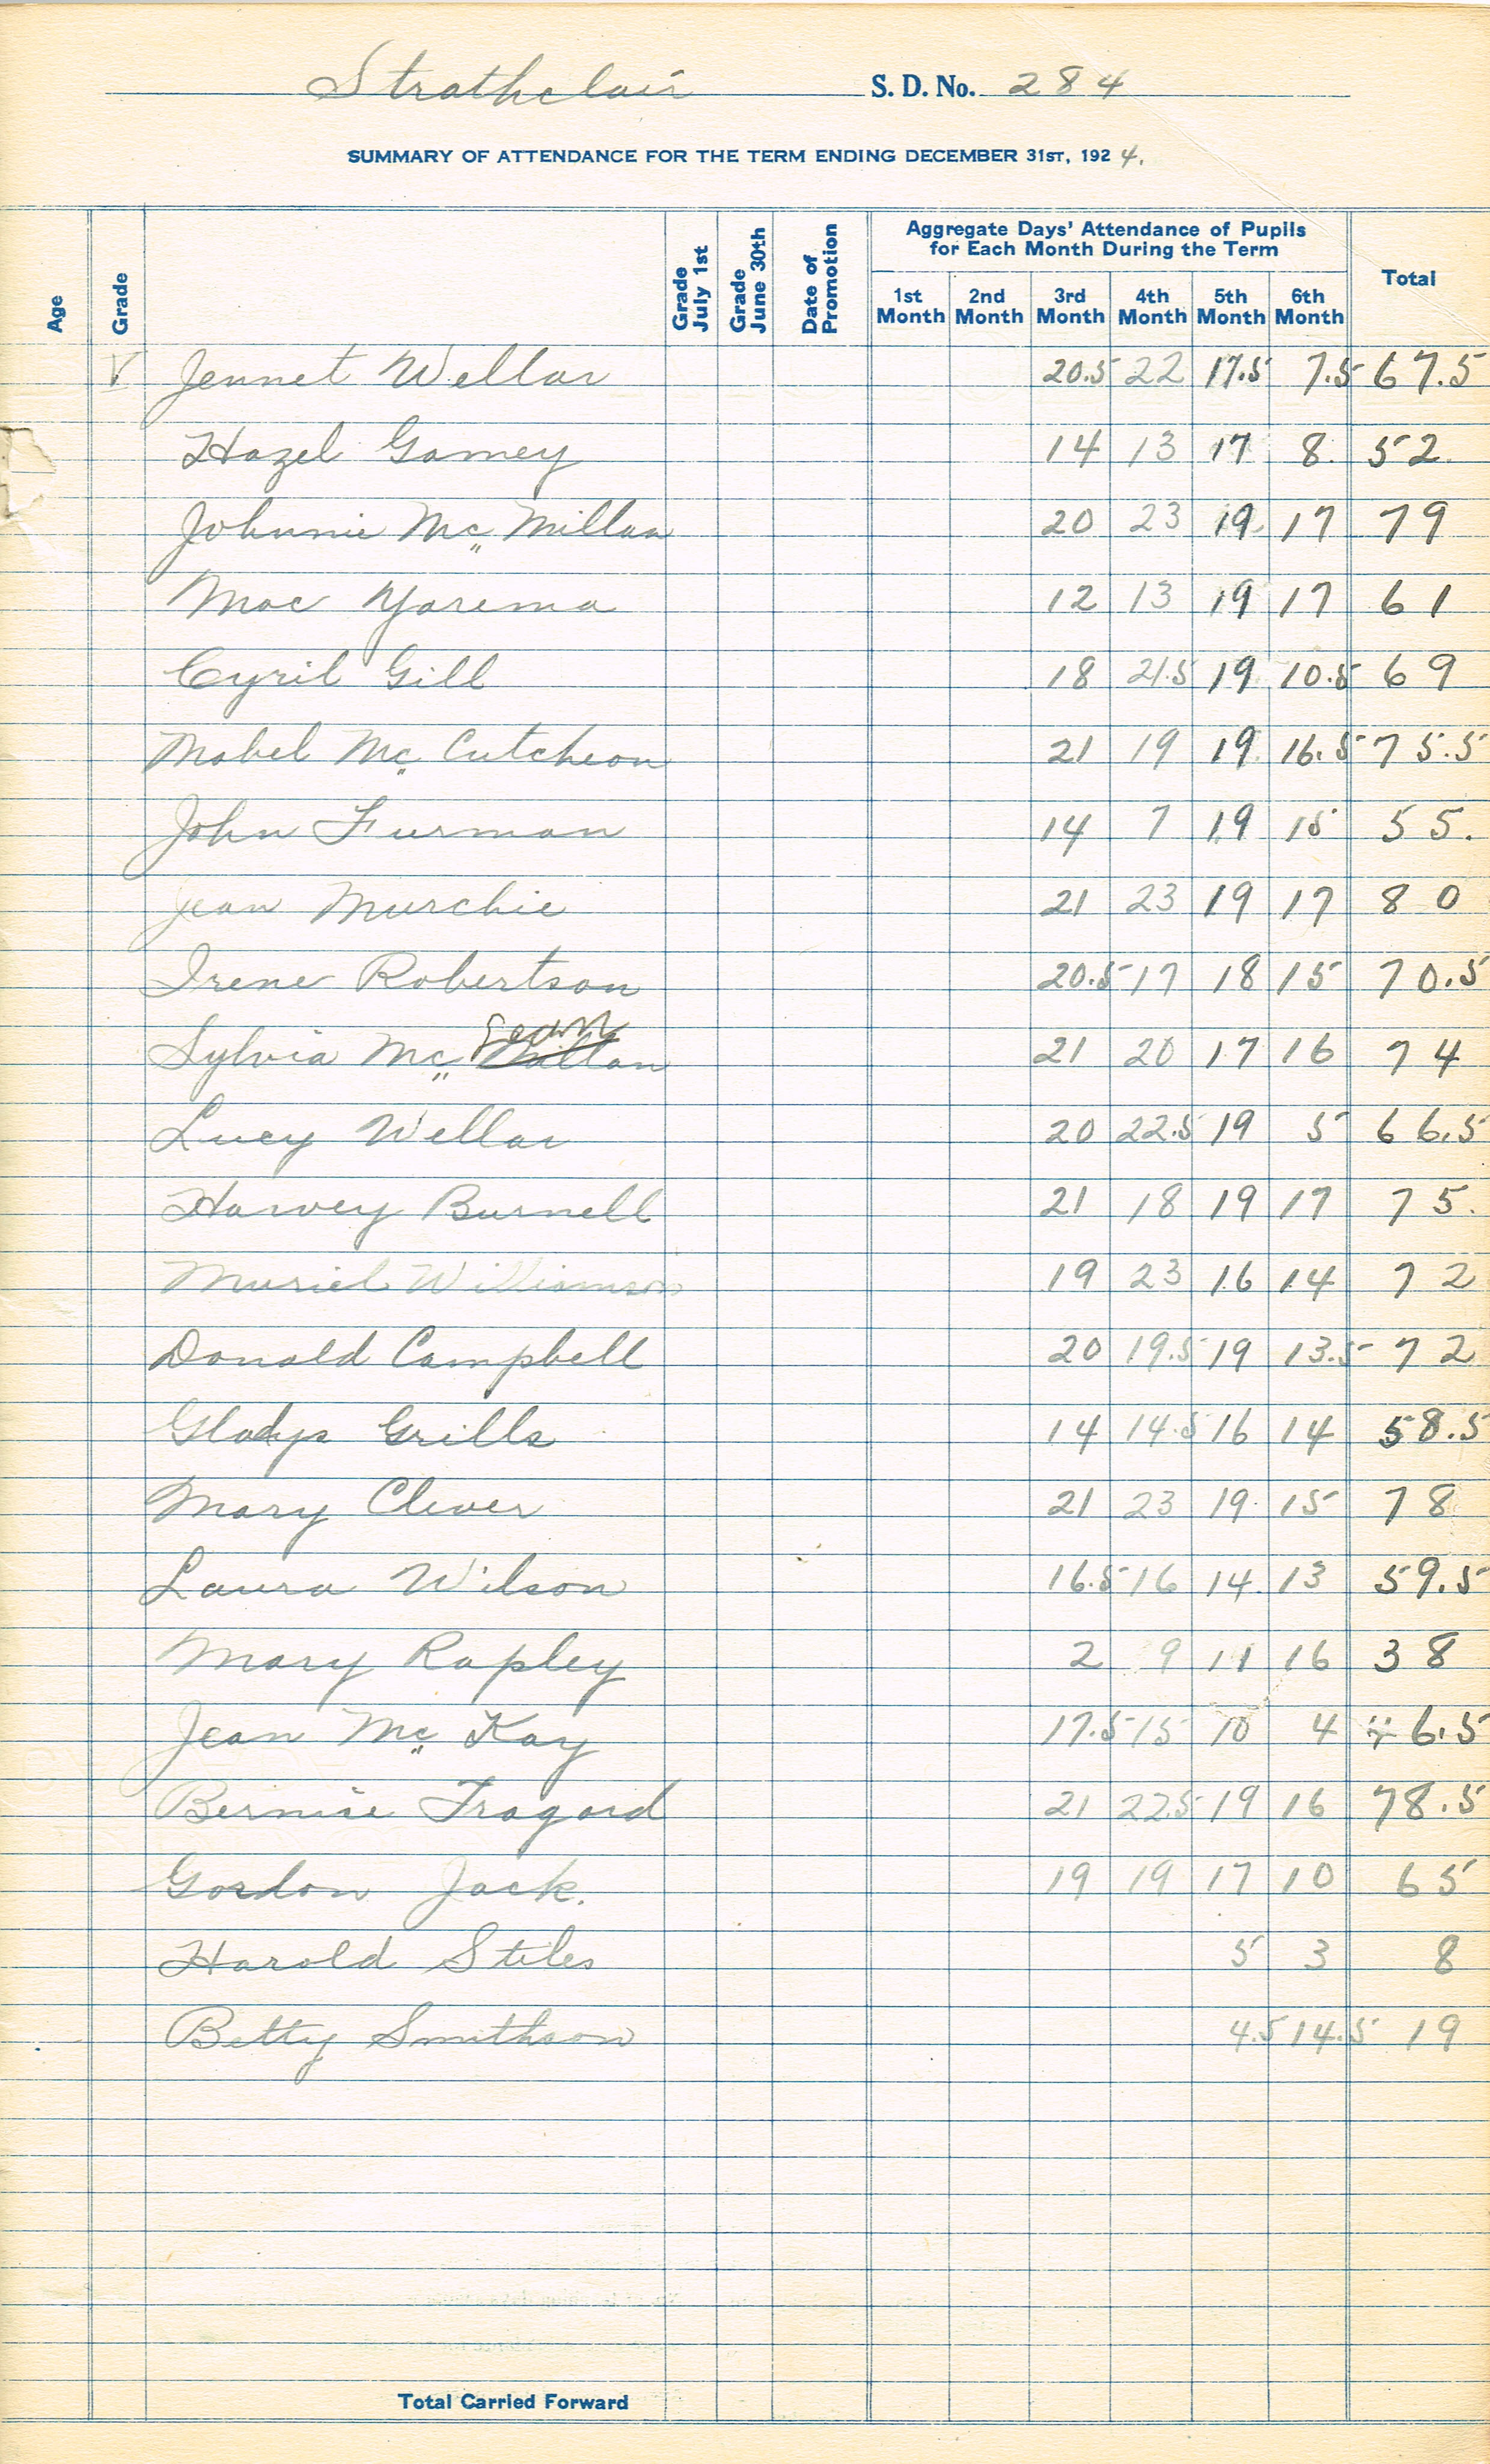 Strathclair S. D. No. 284
SUMMARY OF ATTENDANCE FOR THE TERM ENDING DECEMBER 31ST, 1924.
Age Grade Grade July 1st Grade June 30th Date of Promotion Aggregate Days' Attendance of Pupils for Each Month During the Term Total
1st Month 2nd Month 3rd Month 4th Month 5th Month 6th Month
V Jennet Wellar 20.5 22 17.5 7.5 67.5
Hazel Gamey 14 13 17 8. 52.
Johnnie Mc Millan 20 23 19 17 79
Mac Yarema 12 13 19 17 61
Cyril Gill 18 21.5 19 10.5 69
Mabel Mc Cutcheon 21 19 19 16.5 75.5
John Furman 14 7 19 15 55.
Jean Murchie 21 23 19 17 80
Irene Robertson 20.5 17 18 15 70.5
Sylvia Mc 21 20 17 16 74
Lucy Wellar 20 22.5 19 5 66.5
Harvey Burnell 21 18 19 17 75.
Muriel Williamson 19 23 16 14 72
Donald Campbell 20 19.5 19 13.5 72
Gladys Grills 14 14.5 16 14 58.5
Mary Clever 21 23 19 15 78
Laura Wilson 16.5 16 14 13 59.5
Mary Rapley 2 9 11 16 38
Jean Mc Kay 17.5 15 10 4 46.5
Bernice Tragard 21 22.5 19 16 78.5
Gordon Jack. 19 19 17 10 65
Harold Stiles 5 3 8
Betty Smithson 4.5 14.5 19
Total Carried Forward